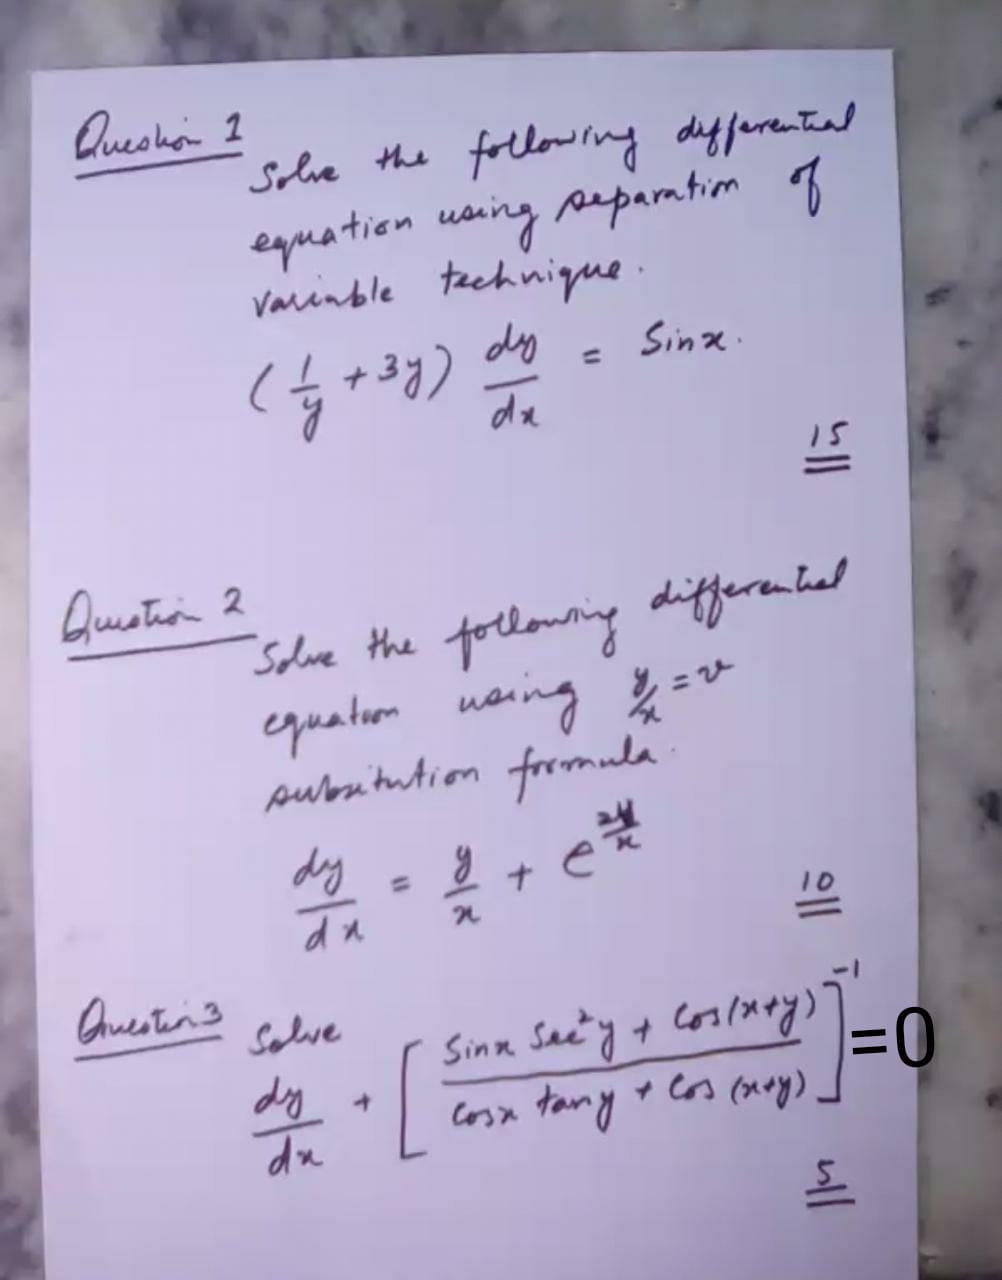 Question 1
Solve the following differential
equation using separation of
variable technique.
(1/y + 3y) dy/dx = Sinx.
15
Question 2
Solve the following differential
equation using y/x = v
subsitution formula.
dy/dx = y/x + e^(2y/x)
10
Question 3 Solve
dy/dx + [(Sinx Sec²y + Cos(x+y))/(Cosx tany + Cos (x+y))]⁻¹ =0
5